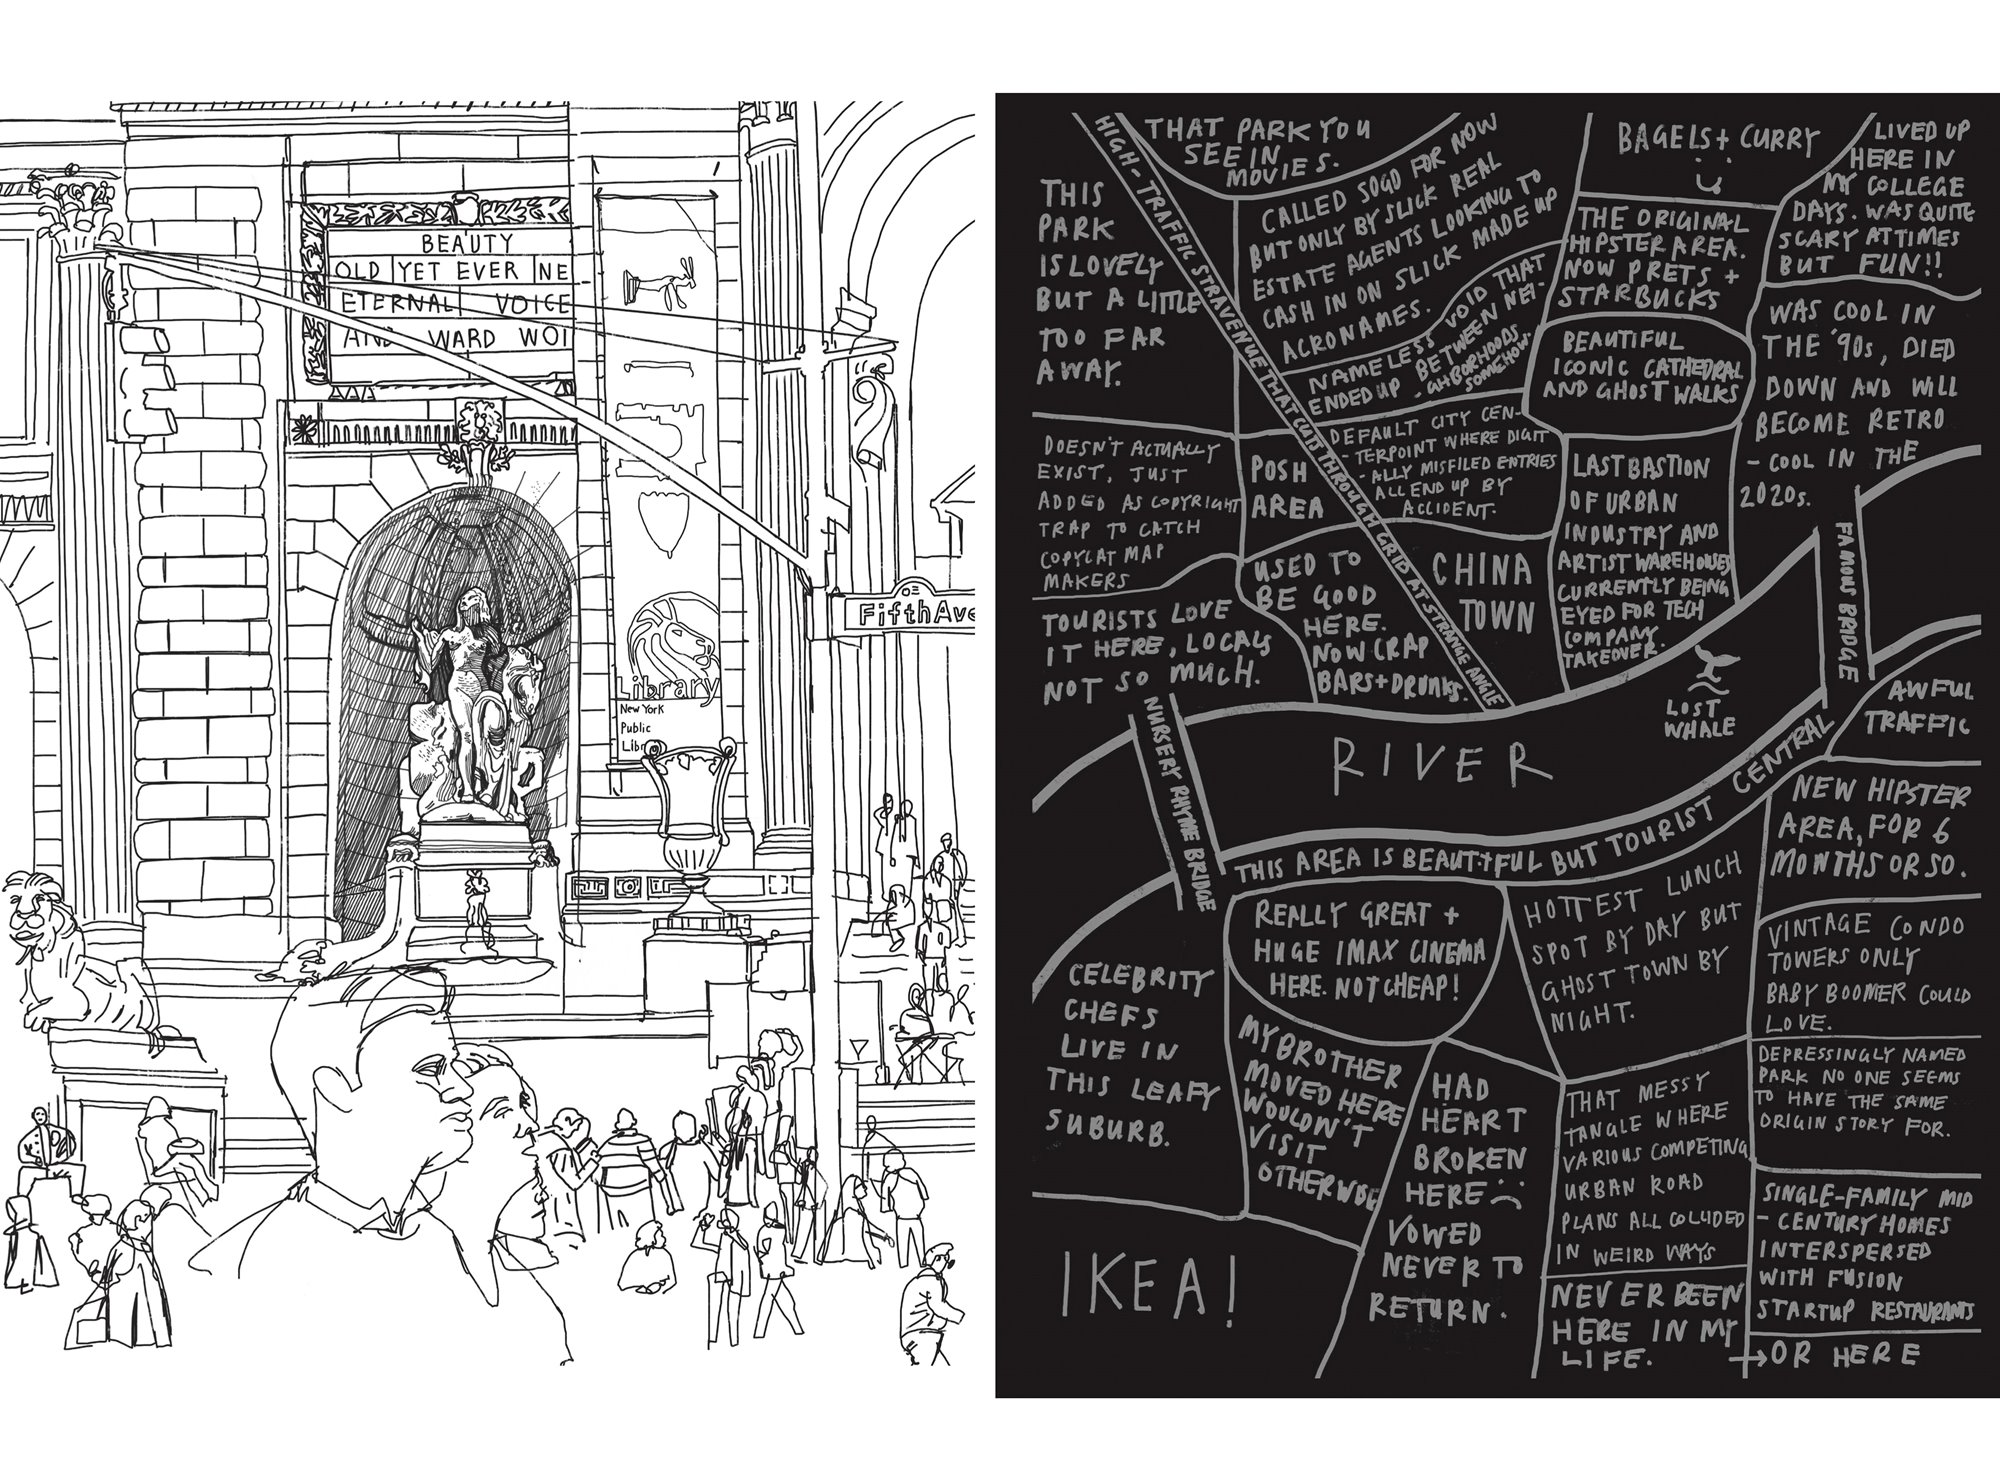 BEAUTY
OLD YET EVER NE
ETERNAL VOICE
AND WARD WOI
Fifth Ave
Library
New York
Public
Libr
THAT PARK YOU
SEE IN
MOVIES.
HIGH-TRAFFIC STRAVENUE THAT CUTS THROUGH GRID AT STRANGE ANGLE
THIS
PARK
IS LOVELY
BUT A LITTLE
TOO FAR
AWAY.
CALLED SOGO FOR NOW
BUT ONLY BY SLICK REAL
ESTATE AGENTS LOOKING TO
CASH IN ON SLICK MADE UP
ACRONAMES.
BAGELS + CURRY
LIVED UP
HERE IN
MY COLLEGE
DAYS. WAS QUITE
SCARY AT TIMES
BUT FUN!!
THE ORIGINAL
HIPSTER AREA.
NOW PRETS +
STARBUCKS
NAMELESS VOID THAT
ENDED UP BETWEEN NEI-
GHBORHOODS..
SOMEHOW.
BEAUTIFUL
ICONIC CATHEDRAL
AND GHOST WALKS
WAS COOL IN
THE '90s, DIED
DOWN AND WILL
BECOME RETRO
- COOL IN THE
2020s.
DOESN'T ACTUALLY
EXIST, JUST
ADDED AS COPYRIGHT
TRAP TO CATCH
COPYCAT MAP
MAKERS
POSH
AREA
DEFAULT CITY CEN-
- TERPOINT WHERE DIGIT
- ALLY MISFILED ENTRIES
ALL END UP BY
ACCIDENT.
LAST BASTION
OF URBAN
INDUSTRY AND
ARTIST WAREHOUSES
CURRENTLY BEING
EYED FOR TECH
COMPANY
TAKEOVER.
TOURISTS LOVE
IT HERE, LOCALS
NOT SO MUCH.
USED TO
BE GOOD
HERE.
NOW CRAP
BARS + DRUNKS.
CHINA
TOWN
FAMOUS BRIDGE
NURSERY RHYME BRIDGE
RIVER
LOST
WHALE
AWFUL
TRAFFIC
THIS AREA IS BEAUTIFUL BUT TOURIST CENTRAL
NEW HIPSTER
AREA, FOR 6
MONTHS OR SO.
REALLY GREAT +
HUGE IMAX CINEMA
HERE. NOT CHEAP!
HOTTEST LUNCH
SPOT BY DAY BUT
GHOST TOWN BY
NIGHT.
VINTAGE CONDO
TOWERS ONLY
BABY BOOMER COULD
LOVE.
CELEBRITY
CHEFS
LIVE IN
THIS LEAFY
SUBURB.
MY BROTHER
MOVED HERE
WOULDN'T
VISIT
OTHERWISE
HAD
HEART
BROKEN
HERE
VOWED
NEVER TO
RETURN.
THAT MESSY
TANGLE WHERE
VARIOUS COMPETING
URBAN ROAD
PLANS ALL COLLIDED
IN WEIRD WAYS
DEPRESSINGLY NAMED
PARK NO ONE SEEMS
TO HAVE THE SAME
ORIGIN STORY FOR.
SINGLE-FAMILY MID
- CENTURY HOMES
INTERSPERSED
WITH FUSION
STARTUP RESTAURANTS
IKEA!
NEVER BEEN
HERE IN MY
LIFE.
→ OR HERE